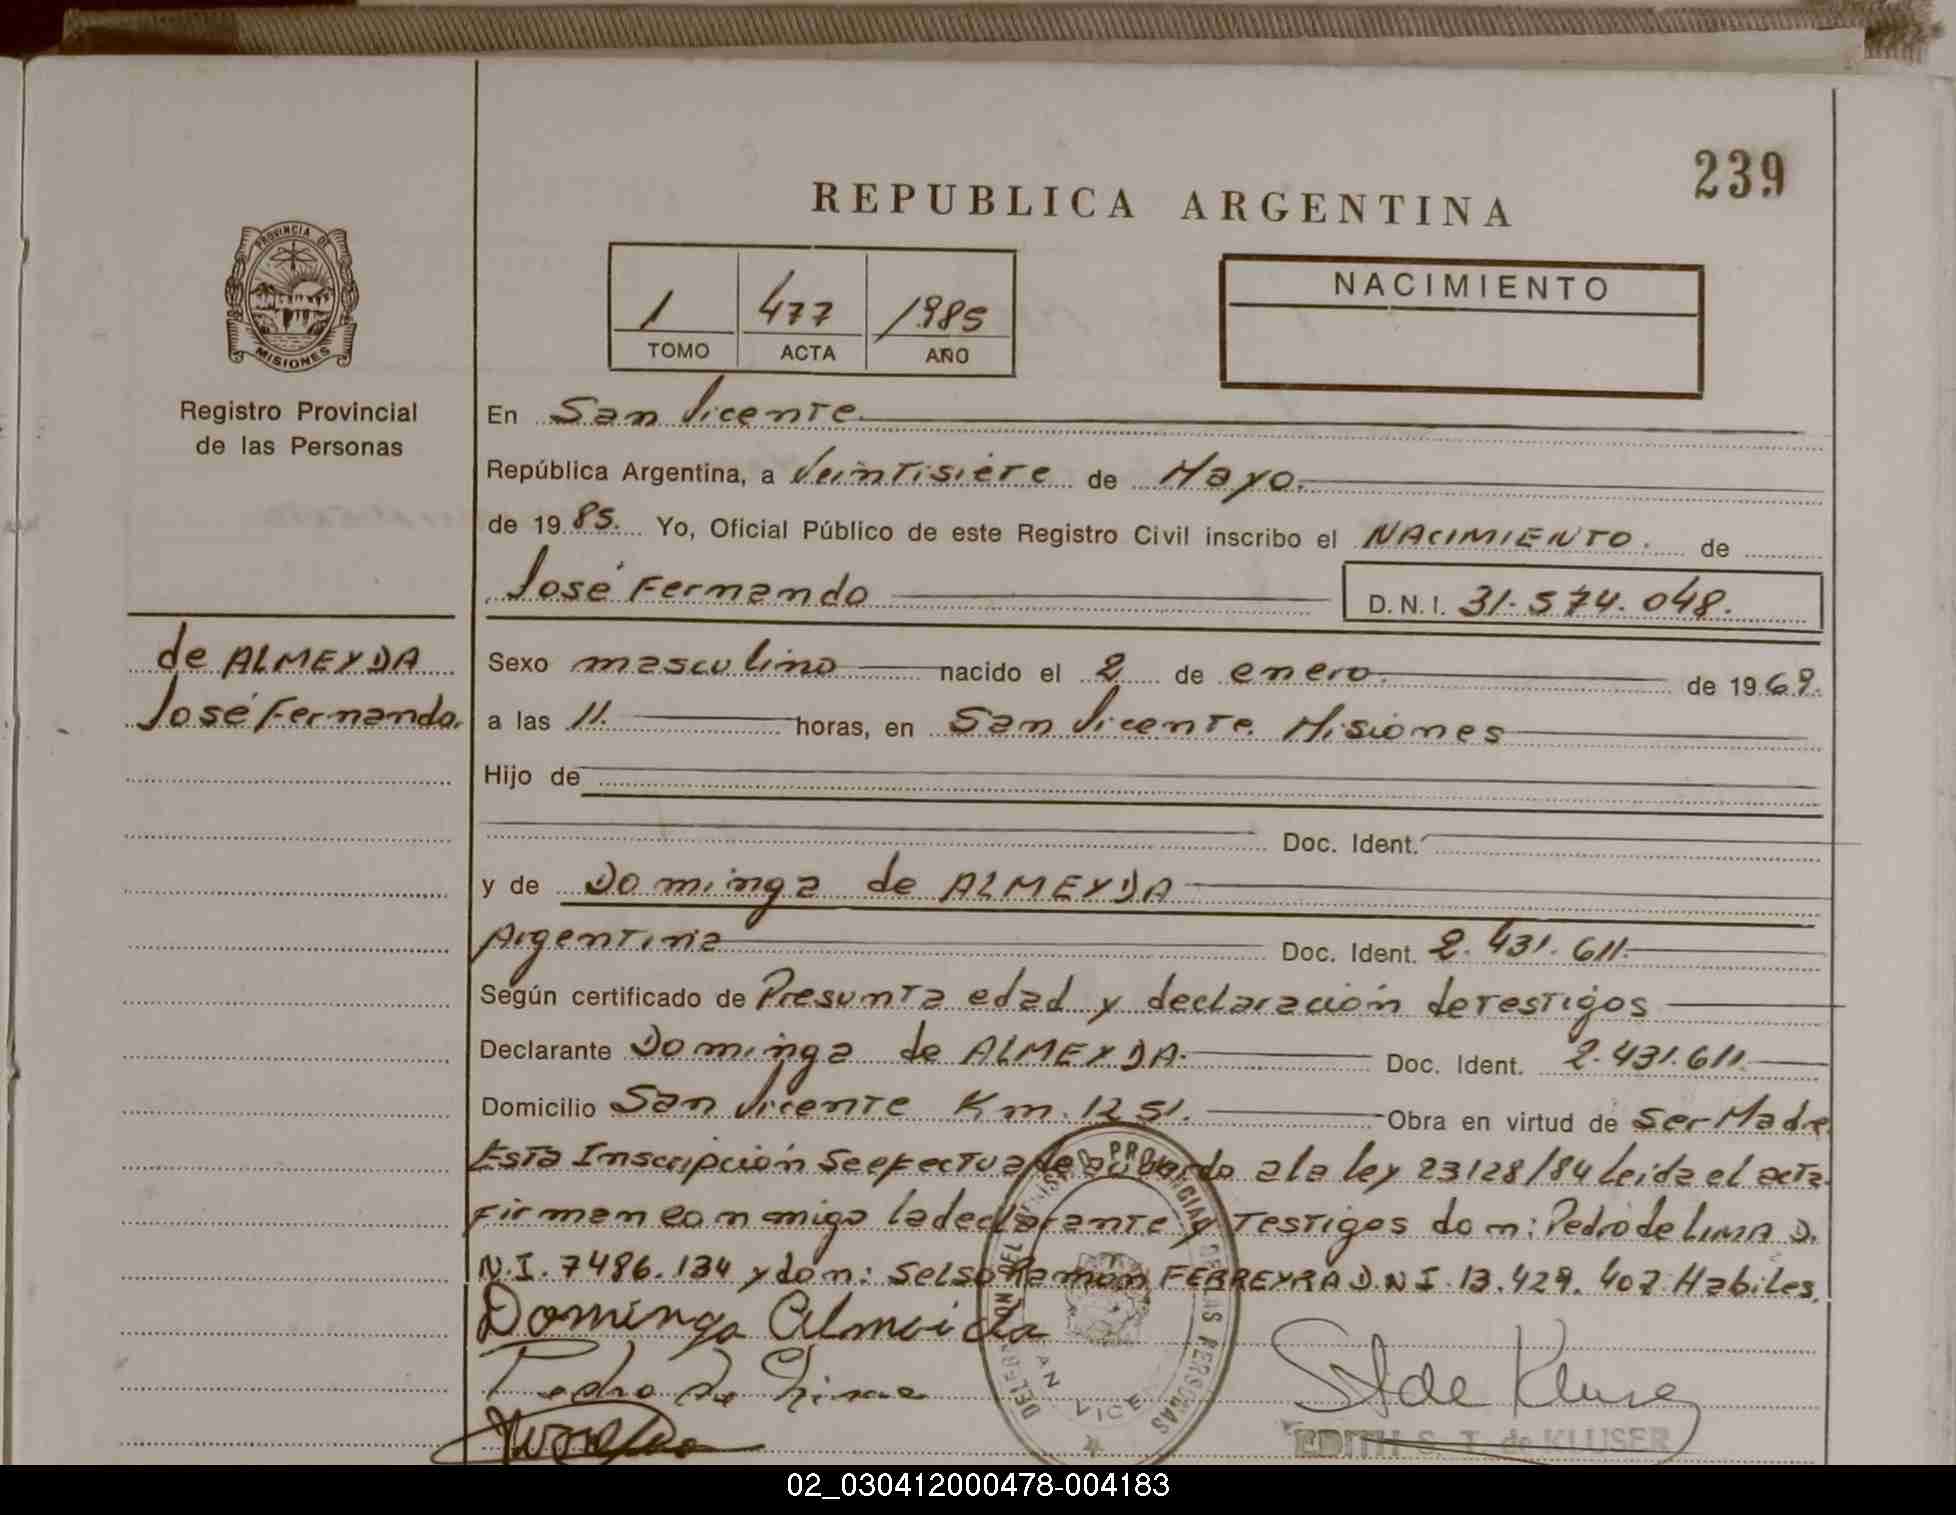 239
REPUBLICA ARGENTINA
PROVINCIA DE
MISIONES
Registro Provincial
de las Personas
1 477 1985
TOMO ACTA AÑO
NACIMIENTO
En San Vicente
República Argentina, a Veintisiete de Mayo.
de 19 85. Yo, Oficial Público de este Registro Civil inscribo el NACIMIENTO. de
José Fernando D.N.I. 31.574.048.
de ALMEYDA
José Fernando.
Sexo masculino nacido el 2 de enero. de 19 69.
a las 11. horas, en San Vicente. Misiones
Hijo de
Doc. Ident.
y de Dominga de ALMEYDA
Argentina Doc. Ident. 2.431.611.
Según certificado de Presunta edad y declaración de testigos
Declarante Dominga de ALMEYDA. Doc. Ident. 2.431.611.
Domicilio San Vicente Km. 1251. Obra en virtud de Ser Madre
Esta Inscripción se efectua de acuerdo a la ley 23128/84 leida el acta
Firman conmigo la declarante y Testigos don: Pedro de LIMA D.
N.I. 7486.134 y don: Selso Ramon FERREYRA D.N.I. 13.429.407. Habiles.
Dominga Almeida
Pedro de Lima
S T de Kluser
EDITH S. T. de KLUSER
02_030412000478-004183